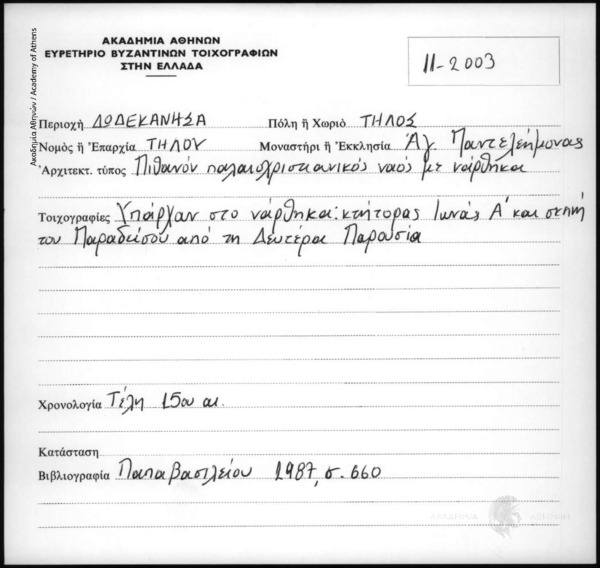 Ακαδημία Αθηνών / Academy of Athens
ΑΚΑΔΗΜΙΑ ΑΘΗΝΩΝ
ΕΥΡΕΤΗΡΙΟ ΒΥΖΑΝΤΙΝΩΝ ΤΟΙΧΟΓΡΑΦΙΩΝ
ΣΤΗΝ ΕΛΛΑΔΑ
11-2003
Περιοχή ΔΩΔΕΚΑΝΗΣΑ Πόλη ἤ Χωριό ΤΗΛΟΣ
Νομός ἤ Ἐπαρχία ΤΗΛΟΥ Μοναστήρι ἤ Ἐκκλησία Ἁγ. Παντελεήμονας
Ἀρχιτεκτ. τύπος Πιθανόν παλαιοχριστιανικός ναός με νάρθηκα
Τοιχογραφίες Υπάρχαν στο νάρθηκα: κτήτορας Ιωνάς Α' και σκηνή
του Παραδείσου από τη Δευτέρα Παρουσία
Χρονολογία Τέλη 15ου αι.
Κατάσταση
Βιβλιογραφία Παπαβασιλείου 1987, σ. 660